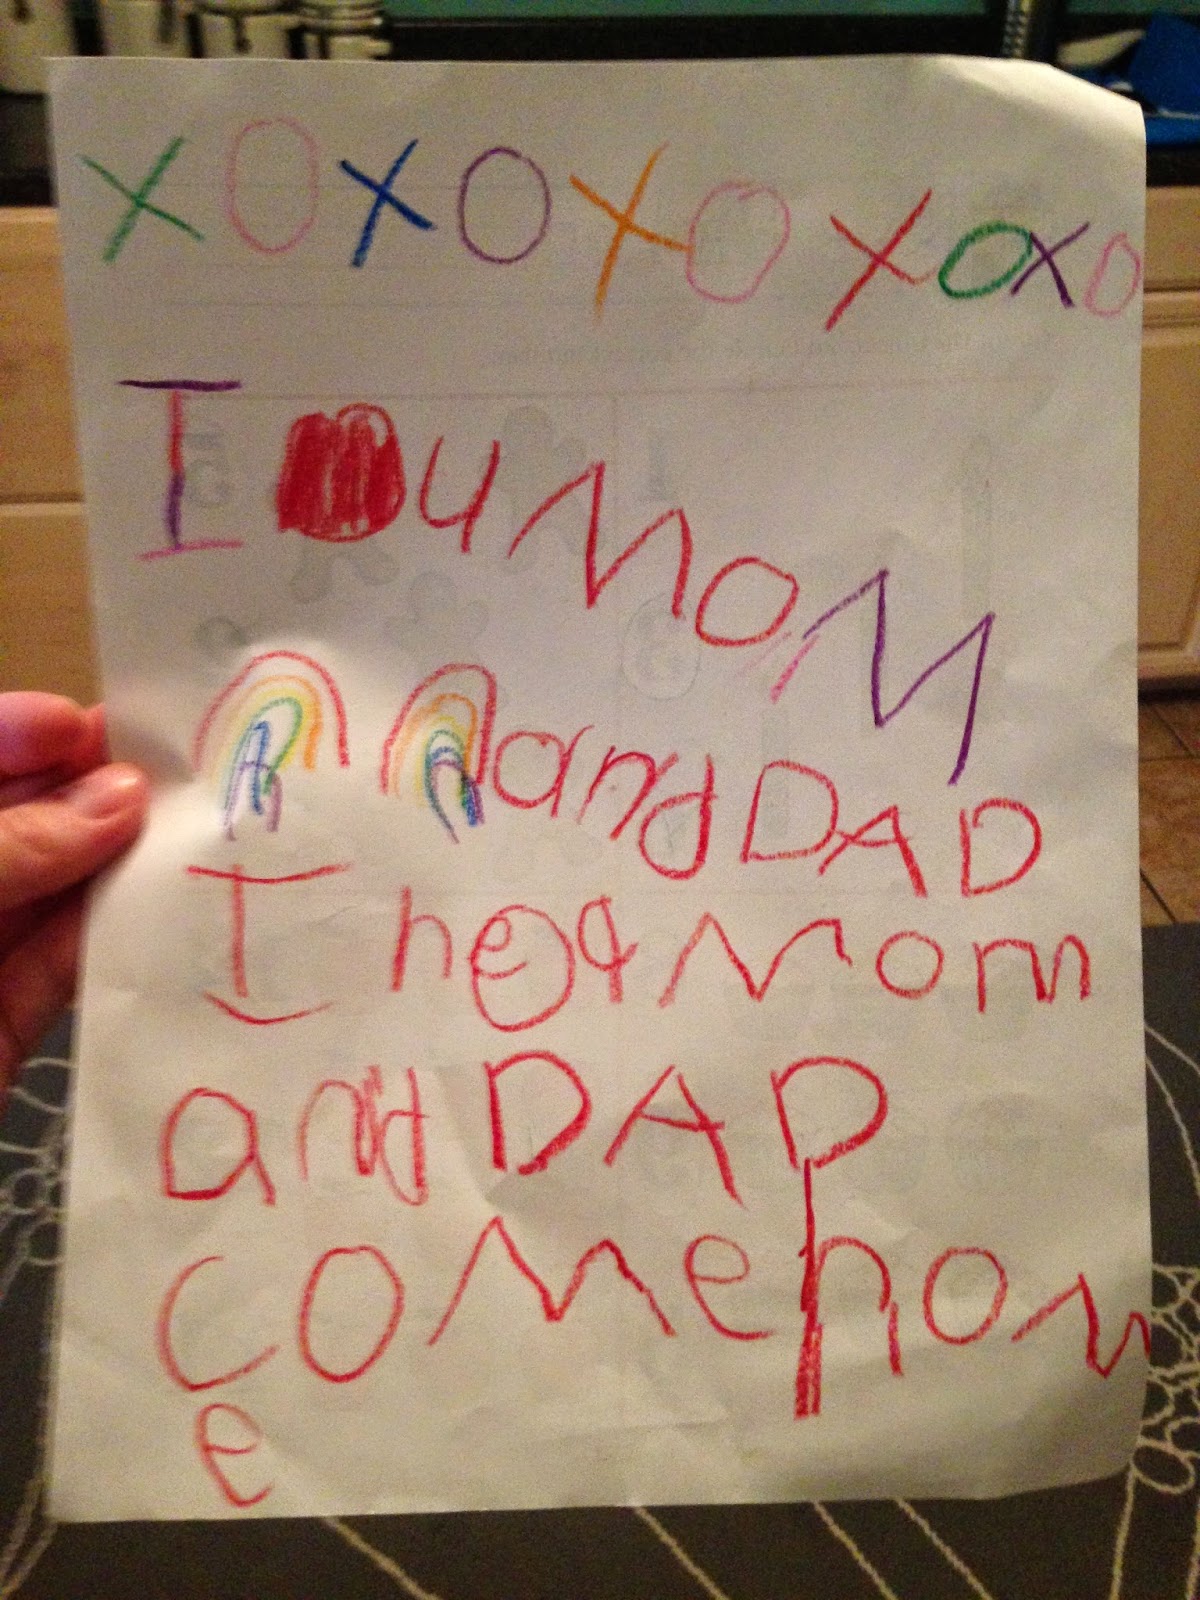 XOXOXOXOXO
I ❤ u MOM
and DAD
I
Mom
and DAD
come hom
e